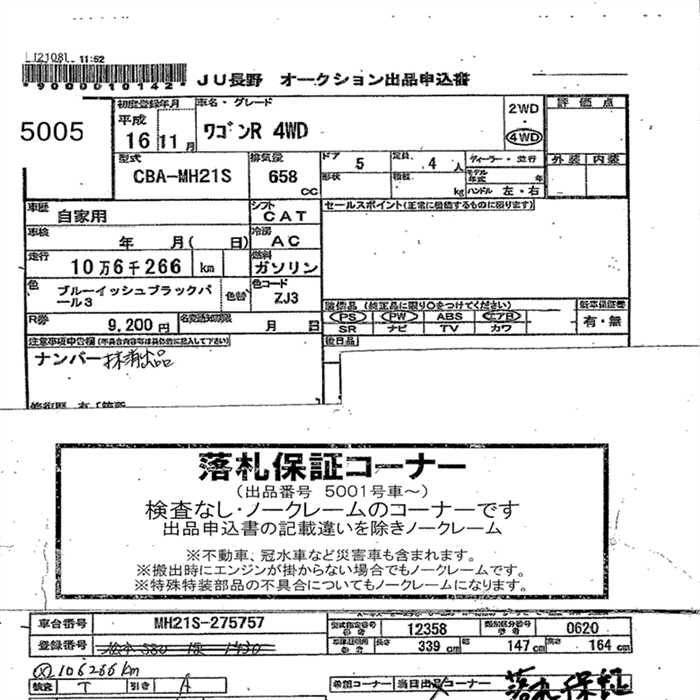 11:52
*9000010142*
JU長野 オークション出品申込書
5005
初度登録年月 車名・グレード
平成 16 11月 ワゴンR 4WD
2WD
4WD
評価点
外装 内装
型式 排気量 ドア 定員
CBA-MH21S 658 cc 5 4人
形状 積載 kg
ディーラー・並行
モデル年式 年
ハンドル 左・右
車歴 自家用
シフト CAT
セールスポイント(正常に機能するものに限ります)
車検 年 月( 日)
冷房 AC
走行 10万6千266 km
燃料 ガソリン
色 ブルーイッシュブラックパール3
色替
色コード ZJ3
装備品 (純正品に限り○をつけてください)
PS PW ABS エアB
SR ナビ TV カワ
新車保証書
有・無
R券 9,200円
名変通知期限 月 日
注意事項申告欄(不具合内容等は具体的に記入して下さい)
ナンバー抹消出品
落札保証コーナー
(出品番号 5001号車〜)
検査なし・ノークレームのコーナーです
出品申込書の記載違いを除きノークレーム
※不動車、冠水車など災害車も含まれます。
※搬出時にエンジンが掛からない場合でもノークレームです。
※特殊特装部品の不具合についてもノークレームになります。
車台番号 MH21S-275757
型式指定番号 12358 類別区分番号 0620
登録番号
長さ 339 cm 幅 147 cm 高さ 164 cm
106266km
検査 T 引き A
希望コーナー 当日出品コーナー
落札保証